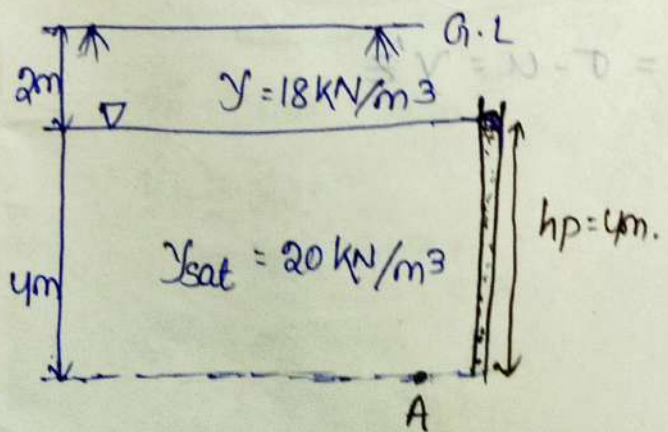 G.L
2m
γ = 18 KN/m3
hp = 4m.
γsat = 20 KN/m3
4m
A